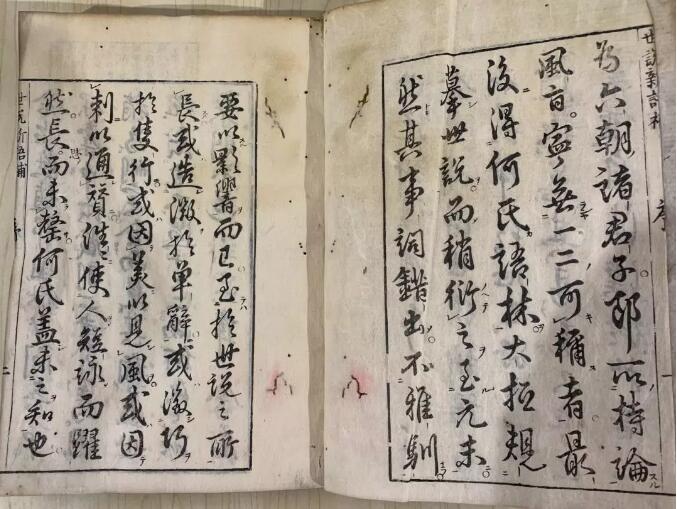 世説新語補 序 一
為六朝諸君子即所持論
風旨寧無一二可稱者最
後得何氏語林大抵規
摹世説而稍衍之至元末
然其事詞錯出不雅馴
要以影響而已至於世説之所
長或造微於單辭或徴巧
於隻行或因美以見風或因
刺以通賛往〻使人短詠而躍
然長思而未罄何氏蓋未之知也
世説新語補 序 二